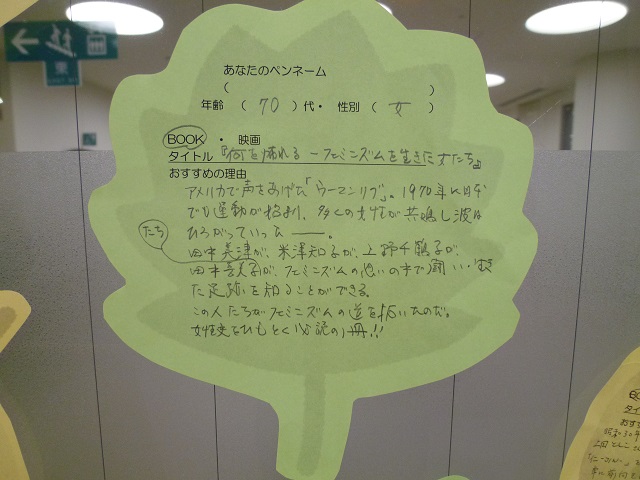 東
あなたのペンネーム
(　　　)
年齢 ( 70 ) 代・ 性別 ( 女 )
BOOK ・ 映画
タイトル 『何を怖れる ーフェミニズムを生きた女たち』
おすすめの理由
アメリカで声をあげた「ウーマンリブ」。1970年に日本
でも運動が始まり、多くの女性が共鳴し波は
ひろがっていった ――。
たち
田中美津が、米澤知子が、上野千鶴子が、
田中喜美子が、フェミニズムの思いの中で闘い・
た足跡を知ることができる。
この人たちがフェミニズムの道を拓いたのだ。
女性史をひもとく必読の1冊!!
タイ
おす